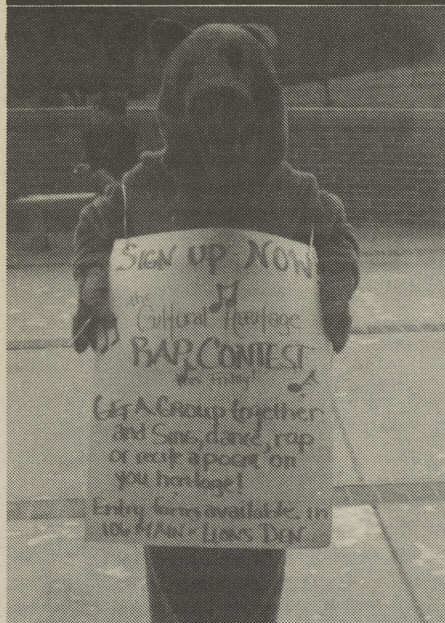 SIGN UP NOW
the
Cultural Heritage
RAP CONTEST
this Friday!
GET A GROUP together
and Sing, dance, rap
or recite a poem on
you heritage!
Entry forms available in
106 MAIN - LIONS DEN